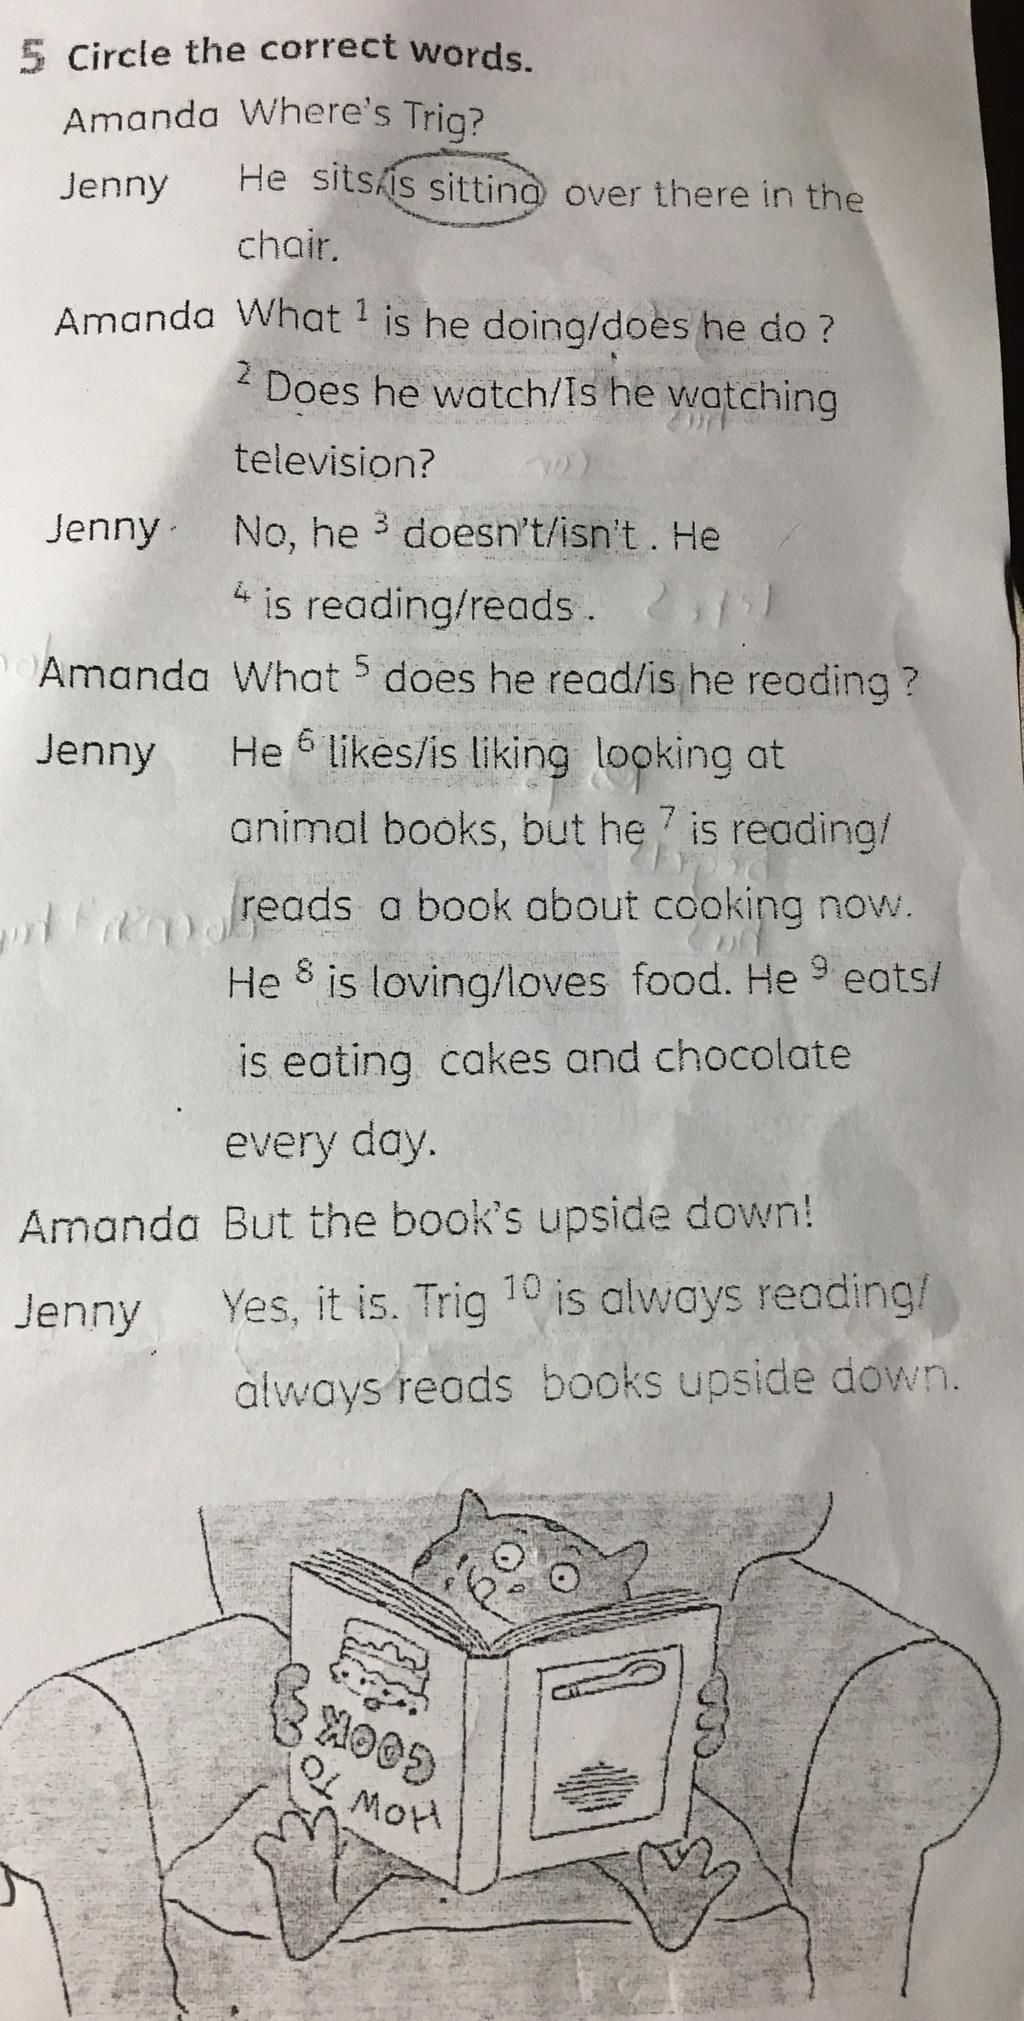 5 Circle the correct words.
Amanda Where's Trig?
Jenny He sits/is sitting over there in the
chair.
Amanda What 1 is he doing/does he do ?
2 Does he watch/Is he watching
television?
Jenny No, he 3 doesn't/isn't . He
4 is reading/reads .
Amanda What 5 does he read/is he reading ?
Jenny He 6 likes/is liking looking at
animal books, but he 7 is reading/
reads a book about cooking now.
He 8 is loving/loves food. He 9 eats/
is eating cakes and chocolate
every day.
Amanda But the book's upside down!
Jenny Yes, it is. Trig 10 is always reading/
always reads books upside down.
HOW
TO
COOK